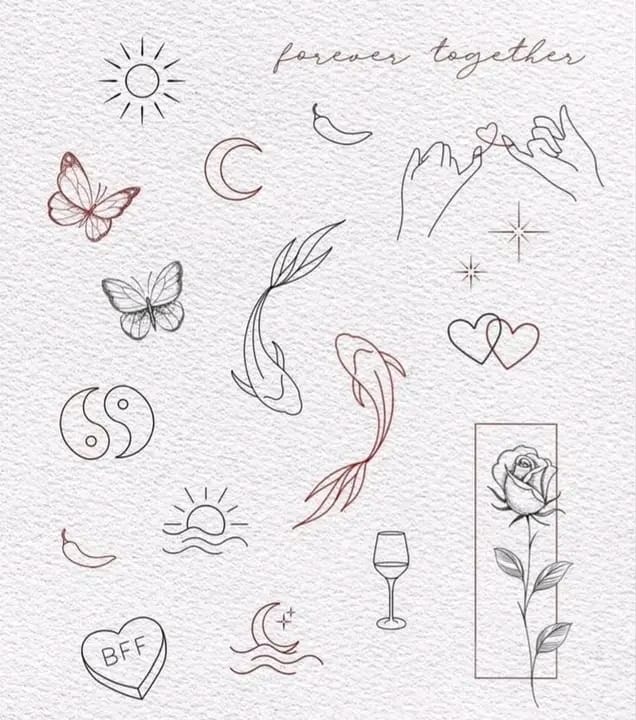 forever together
BFF